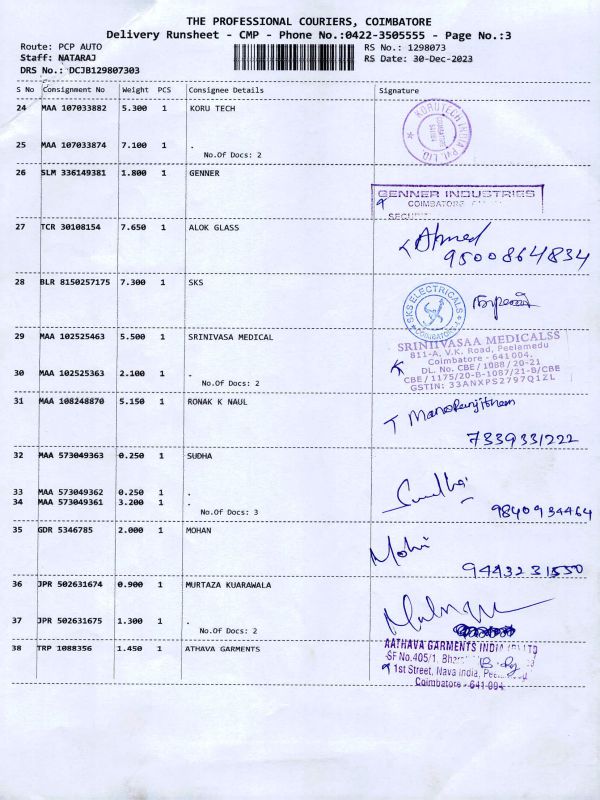 THE PROFESSIONAL COURIERS, COIMBATORE
Delivery Runsheet - CMP - Phone No.:0422-3505555 - Page No.:3
Route: PCP AUTO RS No.: 1298073
Staff: NATARAJ RS Date: 30-Dec-2023
DRS No.: DCJB129807303
S No Consignment No Weight PCS Consignee Details Signature
24 MAA 107033882 5.300 1 KORU TECH
KORUTECH INDIA PVT LTD
COIMBATORE
25 MAA 107033874 7.100 1 .
No.Of Docs: 2
26 SLM 336149381 1.800 1 GENNER
GENNER INDUSTRIES
COIMBATORE
SECURITY
27 TCR 30108154 7.650 1 ALOK GLASS
Ahmed
9500864834
28 BLR 8150257175 7.300 1 SKS
SKS ELECTRICALS
COIMBATORE
29 MAA 102525463 5.500 1 SRINIVASA MEDICAL
SRINIIVASAA MEDICALSS
811-A, V.K. Road, Peelamedu
Coimbatore - 641004.
DL. No. CBE / 1088 / 20-21
CBE / 1175/20-B-1087/21-B/CBE
GSTIN: 33ANXPS2797Q1ZL
30 MAA 102525363 2.100 1 .
No.Of Docs: 2
31 MAA 108248870 5.150 1 RONAK K NAUL
T Manoranjitham
7339331222
32 MAA 573049363 0.250 1 SUDHA
Sudha
9840934464
33 MAA 573049362 0.250 1 .
34 MAA 573049361 3.200 1 .
No.Of Docs: 3
35 GDR 5346785 2.000 1 MOHAN
Mohn
9443231550
36 JPR 502631674 0.900 1 MURTAZA KUARAWALA
37 JPR 502631675 1.300 1 .
No.Of Docs: 2
38 TRP 1088356 1.450 1 ATHAVA GARMENTS
AATHAVA GARMENTS INDIA (P) LTD
SF No.405/1,
1st Street, Nava India,
Coimbatore - 641 004.